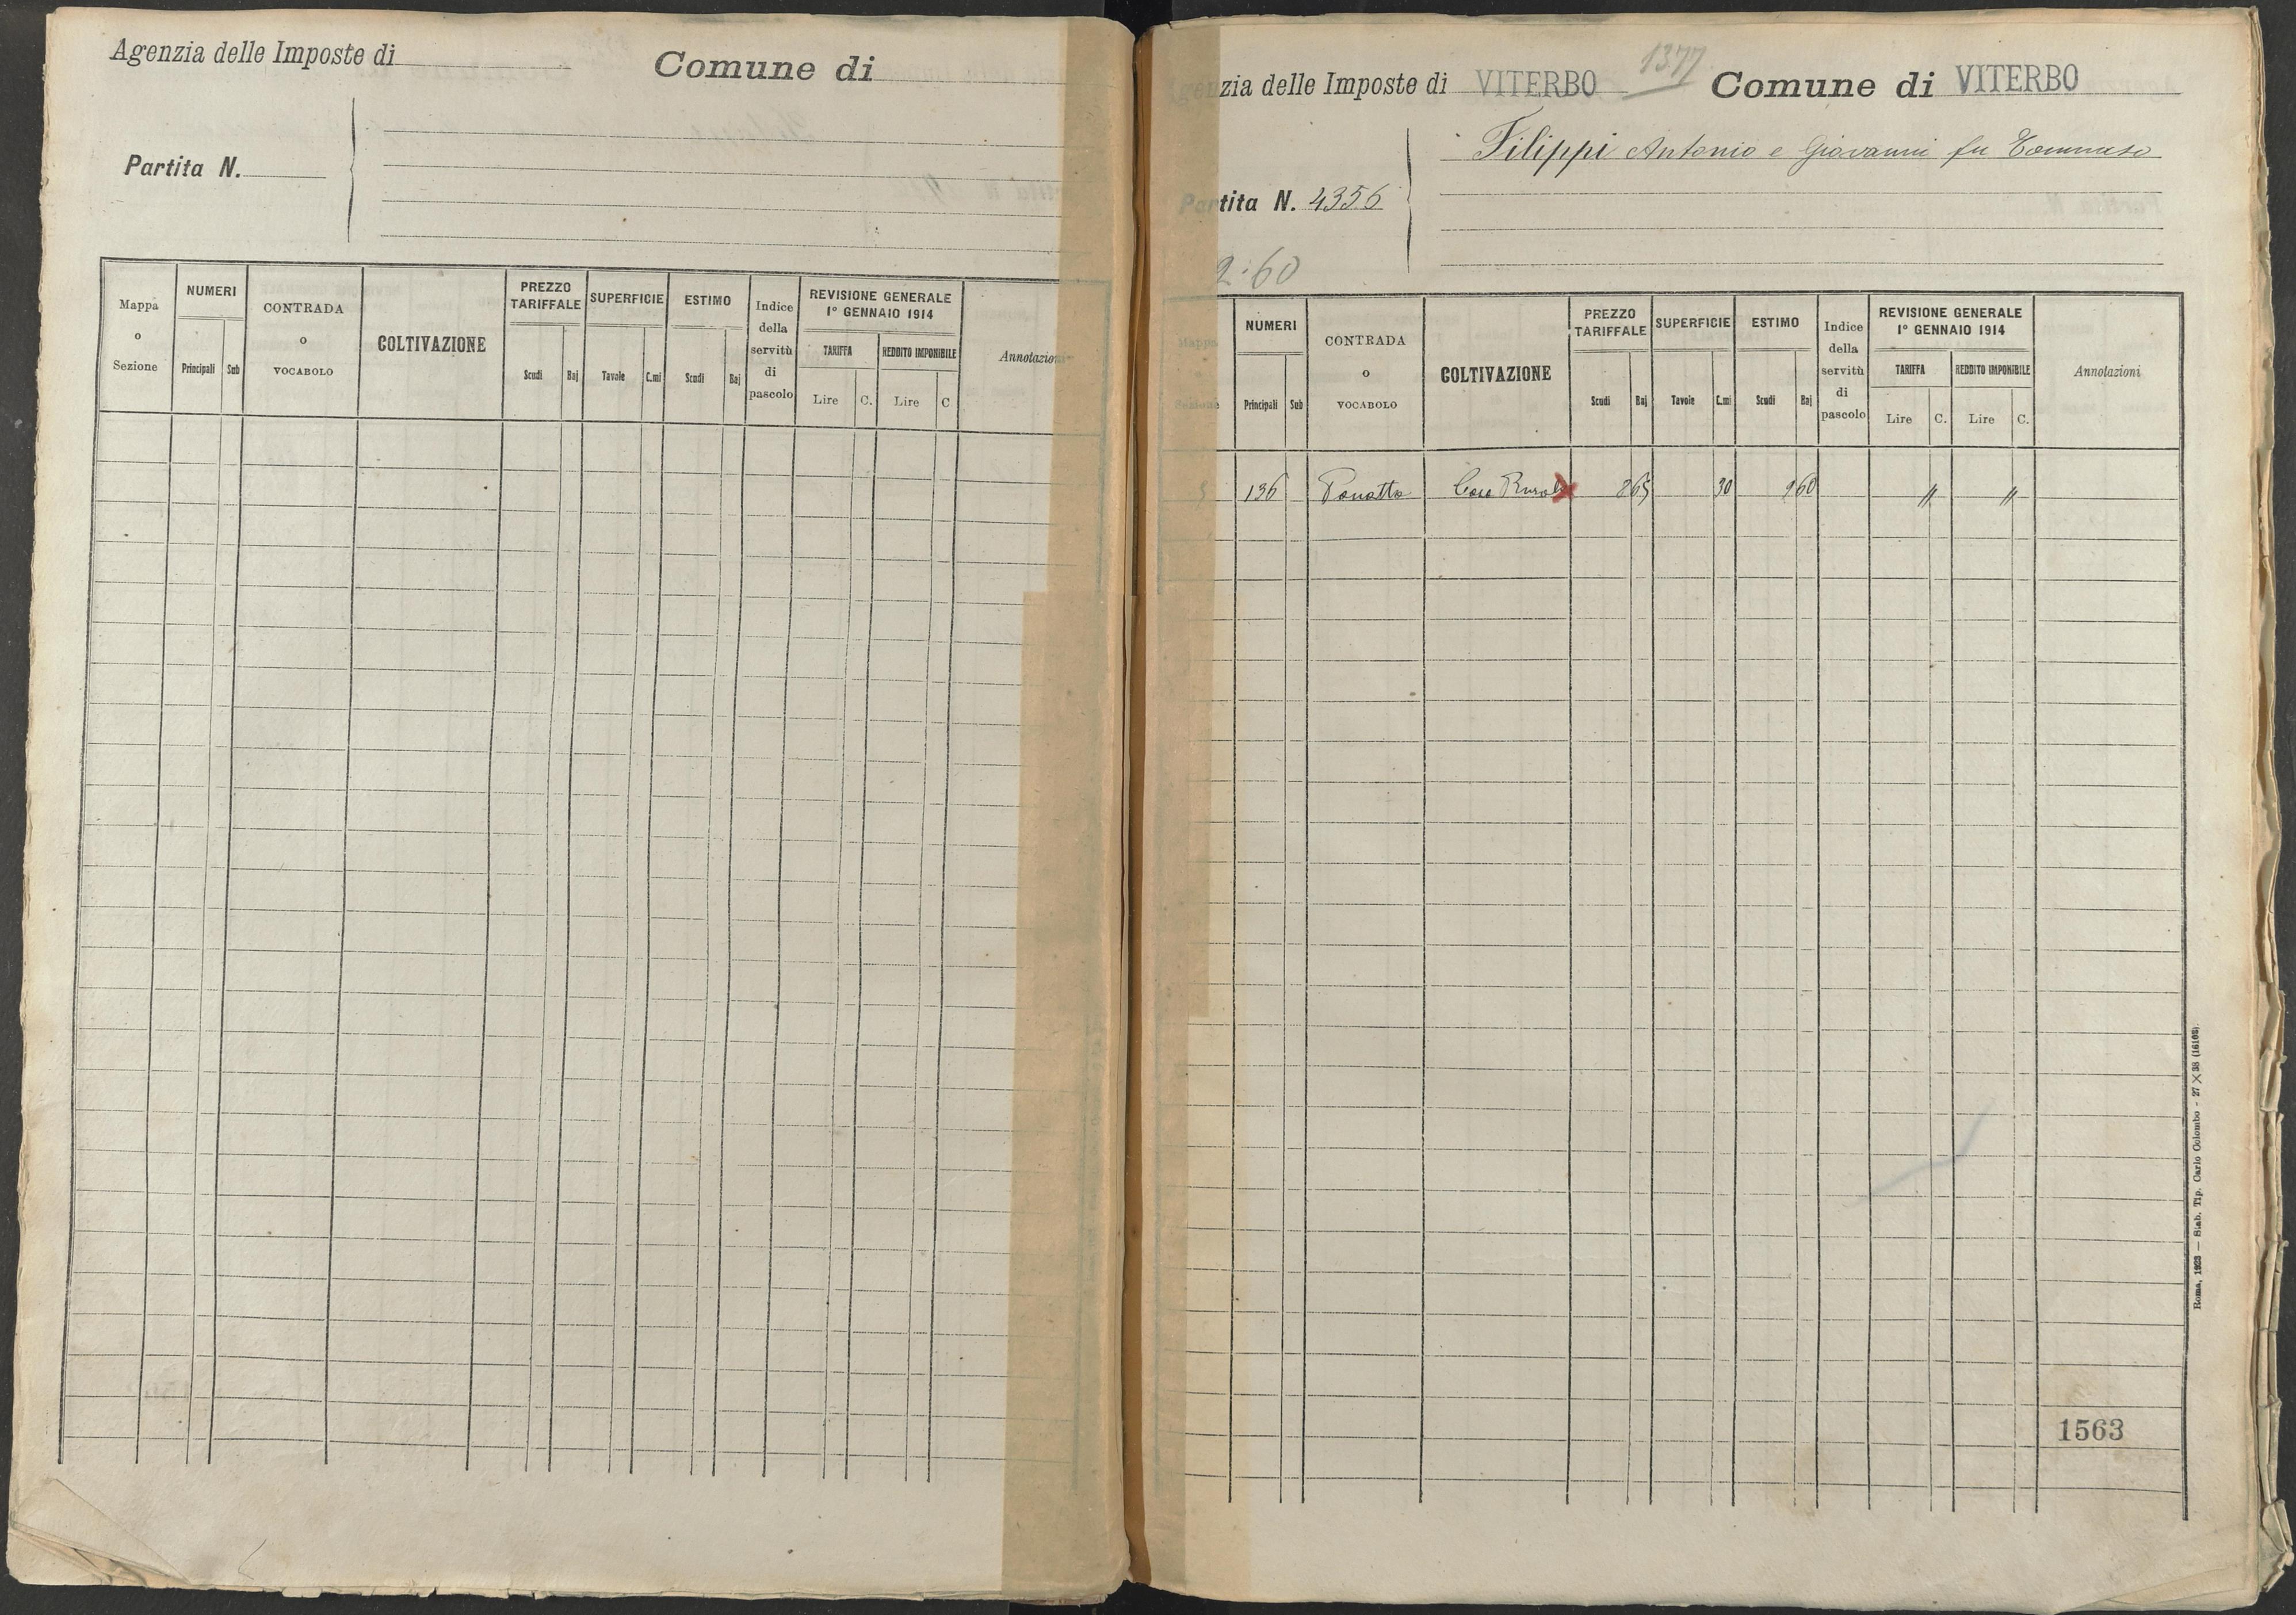 Agenzia delle Imposte di
Comune di
Partita N.
Mappa o Sezione
NUMERI
Principali Sub
CONTRADA O VOCABOLO
COLTIVAZIONE
PREZZO TARIFFALE
Scudi Baj
SUPERFICIE
Tavole C.mi
ESTIMO
Scudi Baj
Indice della servitù di pascolo
REVISIONE GENERALE
1º GENNAIO 1914
TARIFFA
Lire C.
REDDITO IMPONIBILE
Lire C
Annotazioni
1377
Agenzia delle Imposte di VITERBO Comune di VITERBO
Filippi Antonio e Giovanni fu Tommaso
Partita N. 4356
2:60
Mappa o Sezione
NUMERI
Principali Sub
CONTRADA O VOCABOLO
COLTIVAZIONE
PREZZO TARIFFALE
Scudi Baj
SUPERFICIE
Tavole C.mi
ESTIMO
Scudi Baj
Indice della servitù di pascolo
REVISIONE GENERALE
1º GENNAIO 1914
TARIFFA
Lire C.
REDDITO IMPONIBILE
Lire C.
Annotazioni
5 136 Casa Rurale 865 30 960 " "
Roma, 1923 — Stab. Tip. Carlo Colombo - 27 X 38 (16102).
1563